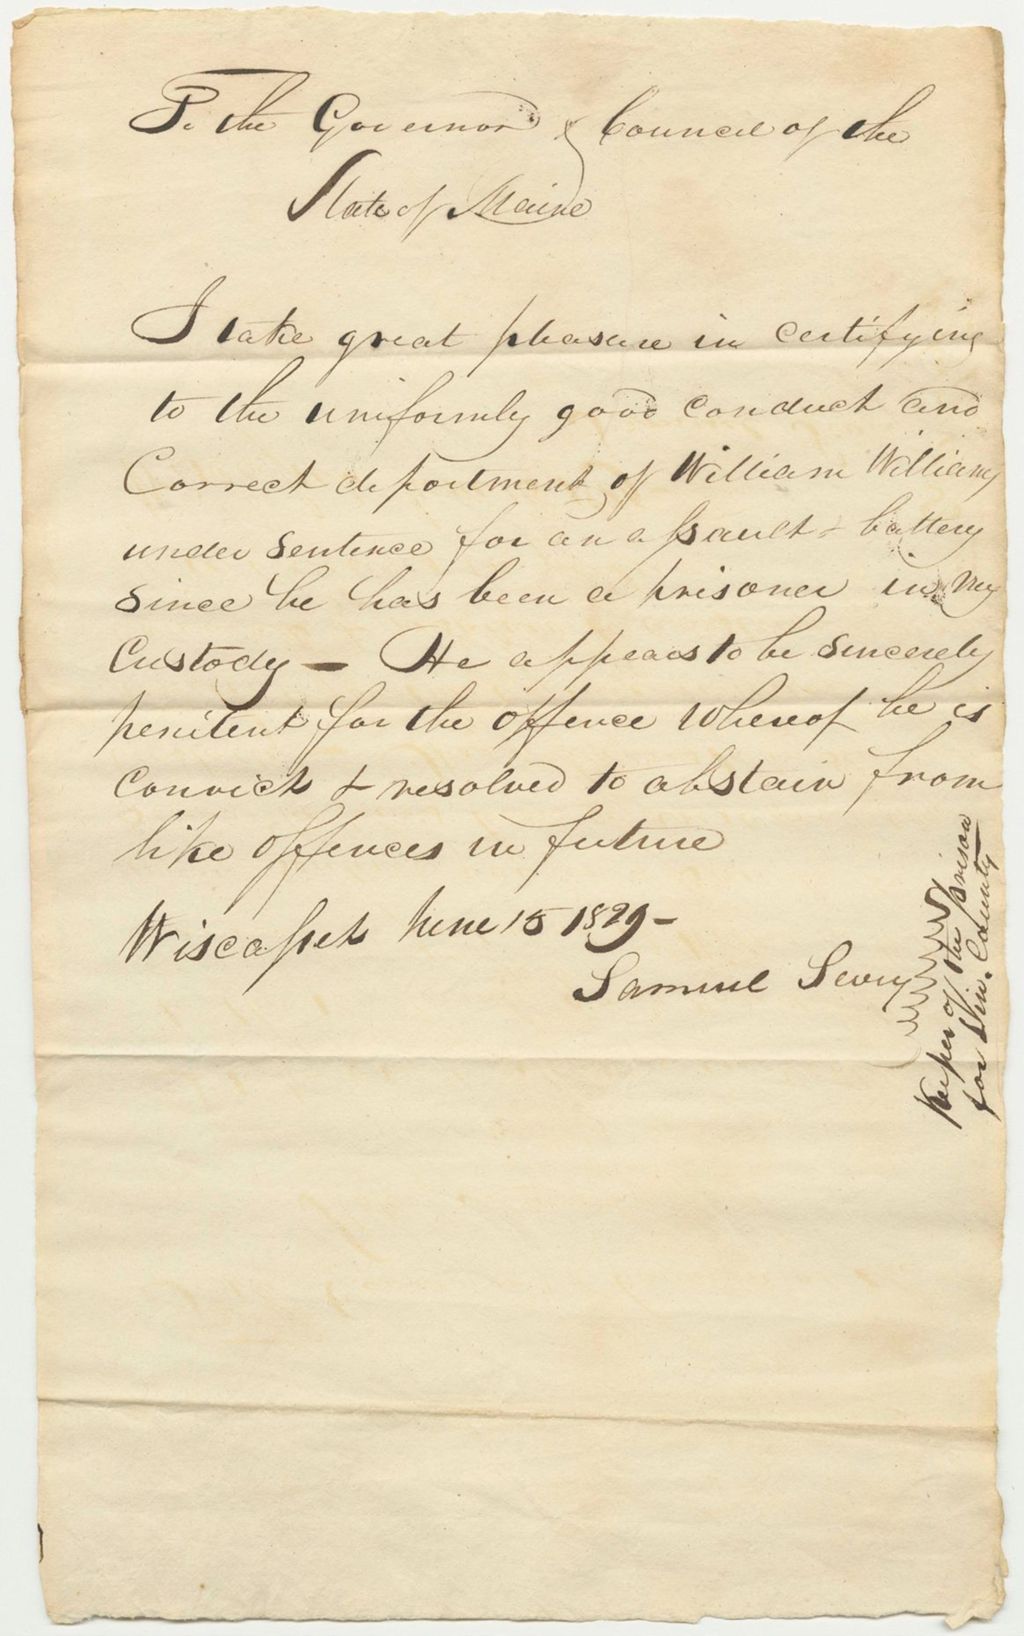 To the Governor & Council of the
State of Maine
I take great pleasure in certifying
to the uniformly good conduct and
Correct deportment of William Williams
under sentence for an assault & battery
since he has been a prisoner in my
Custody — He appears to be sincerely
penitent for the offence whereof he is
Convict & resolved to abstain from
like offences in future
Wiscasset June 15 1829 -
Samuel Sevey
Keeper of the prison
for Lin. County